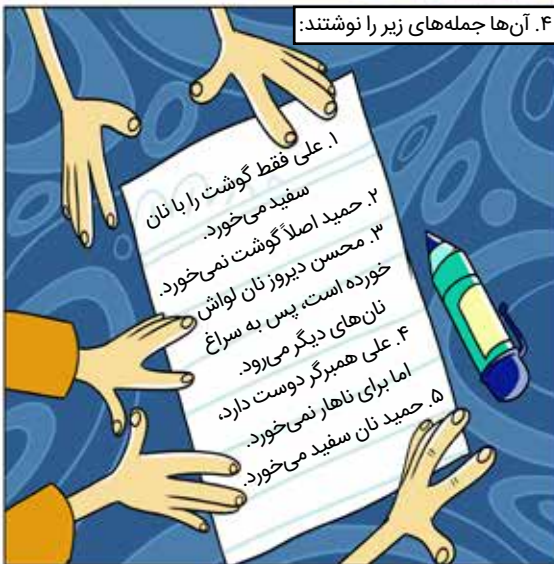 ۴. آن‌ها جمله‌های زیر را نوشتند:
۱. علی فقط گوشت را با نان
سفید می‌خورد.
۲. حمید اصلاً گوشت نمی‌خورد.
۳. محسن دیروز نان لواش
خورده است، پس به سراغ
نان‌های دیگر می‌رود.
۴. علی همبرگر دوست دارد،
اما برای ناهار نمی‌خورد.
۵. حمید نان سفید می‌خورد.